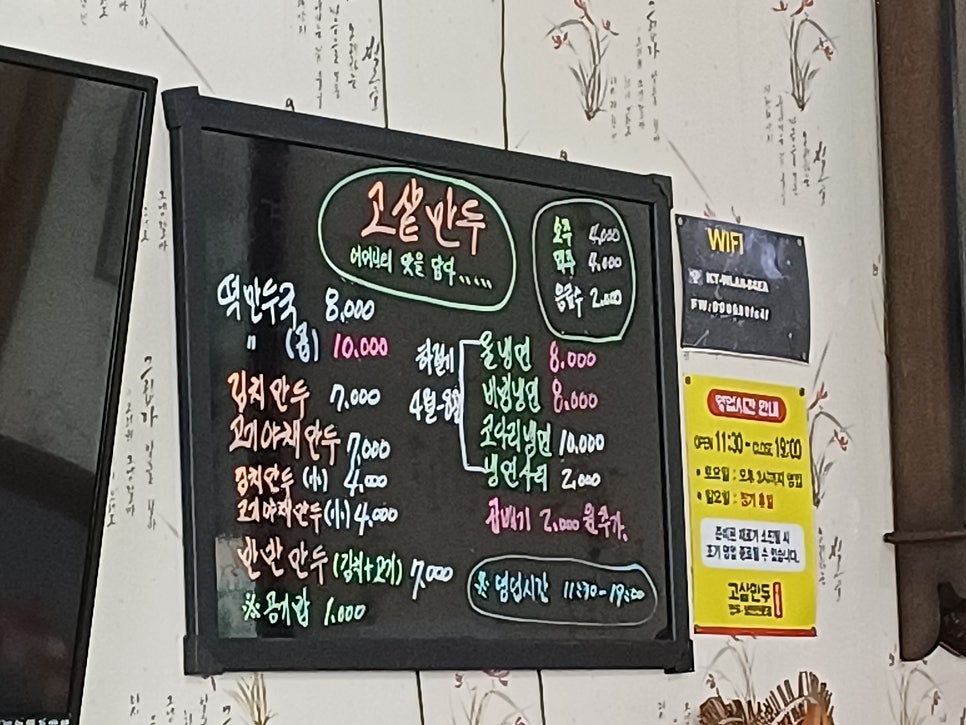 고샅만두
어머니의 맛을 담다.....
소주 4,000
맥주 4,000
음료수 2,000
떡만두국 8,000
" (곱) 10,000
김치만두 7,000
고기야채만두 7,000
김치만두 (小) 4,000
고기야채만두 (小) 4,000
반반만두 (김치+고기) 7,000
※공기밥 1,000
하절기
4월-8월
물냉면 8,000
비빔냉면 8,000
코다리냉면 10,000
냉면사리 2,000
곱배기 2,000원추가.
※ 영업시간 11:30-19:00
WIFI
영업시간 안내
OPEN 11:30 - CLOSE 19:00
• 토요일 : 오후 3시까지 영업
• 일요일 : 정기 휴일
준비된 재료가 소진될 시
조기 영업 종료될 수 있습니다.
고샅만두